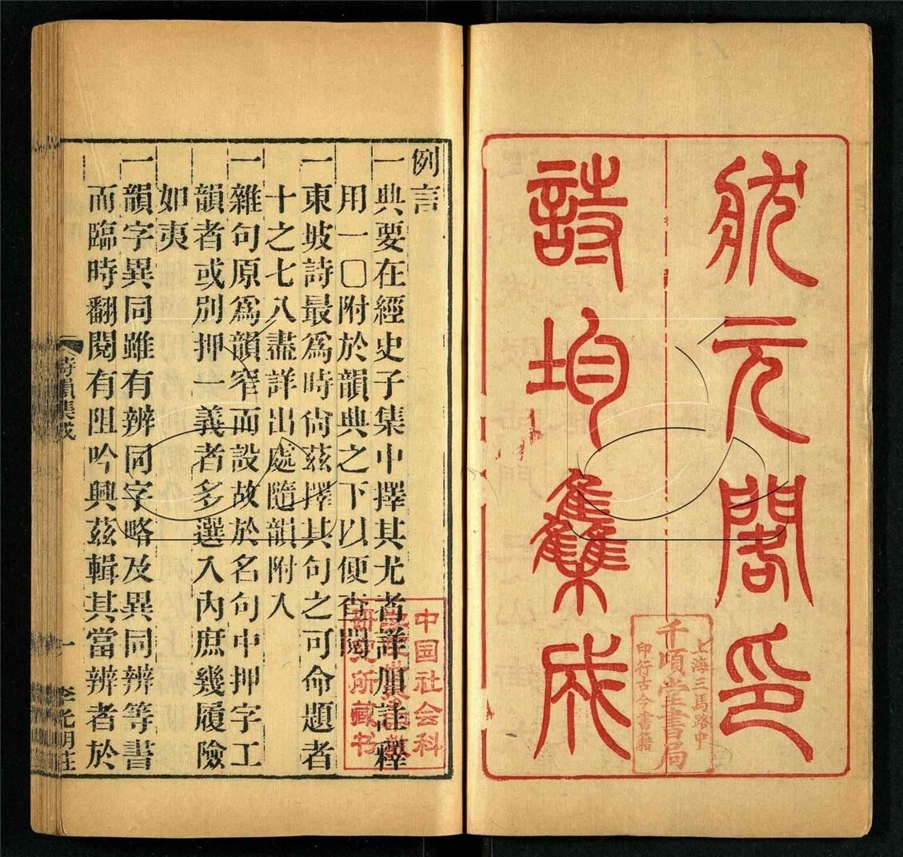 狀元閣印
詩均雧成
上海三馬路中
千頃堂書局
印行古今書籍
例言
一典要在經史子集中擇其尤者詳加註釋
用一〇附於韻典之下以便查閱
一東坡詩最爲時尙茲擇其句之可命題者
十之七八盡詳出處隨韻附入
一雜句原爲韻窄而設故於名句中押字工
韻者或別押一義者多選入內庶幾履險
如夷
一韻字異同雖有辨同字略及異同辨等書
而臨時翻閱有阻吟興茲輯其當辨者於
詩韻集成 一 李光明莊
中国社会科
研究所藏书